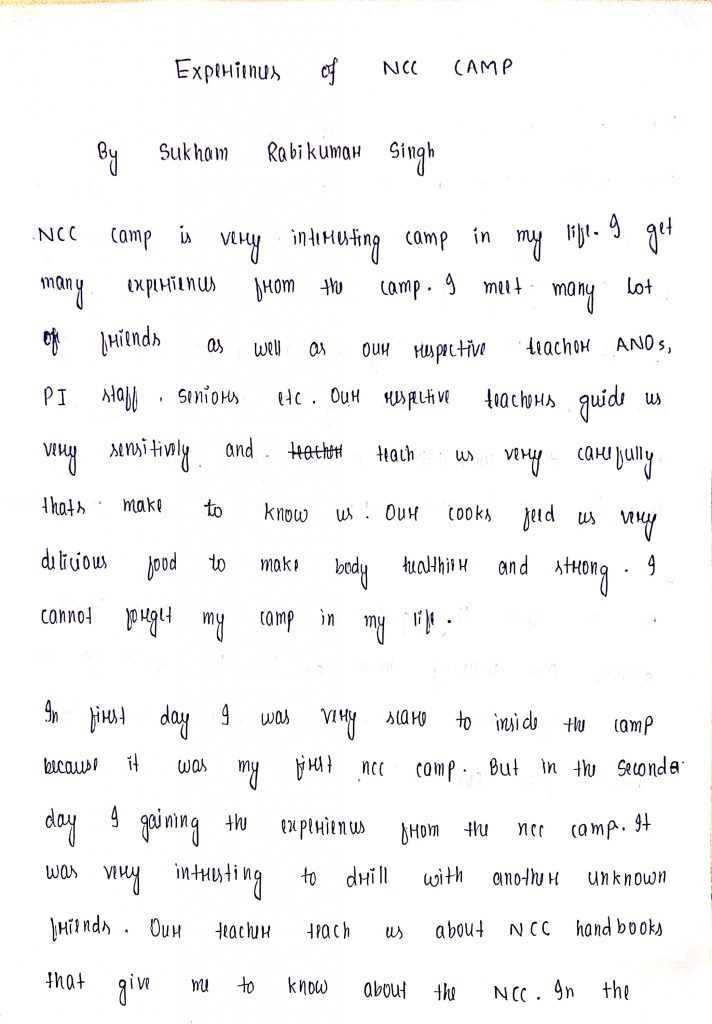 Experiences of NCC CAMP
By Sukham Rabikumar Singh
NCC camp is very interesting camp in my life. I get
many experiences from the camp. I meet many lot
of friends as well as our respective teacher ANOs,
PI staff, seniors etc. Our respective teachers guide us
very sensitively and teacher teach us very carefully
thats make to know us. Our cooks feed us very
delicious food to make body healthier and strong. I
cannot forget my camp in my life.
In first day I was very scare to inside the camp
because it was my first ncc camp. But in the seconde
day I gaining the experiences from the ncc camp. It
was very intresting to drill with another unknown
friends. Our teacher teach us about NCC handbooks
that give me to know about the NCC. In the